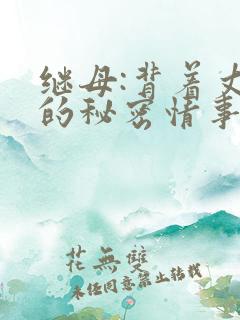 继母:背着丈
的秘密情事
花無雙
未经同意禁止转载